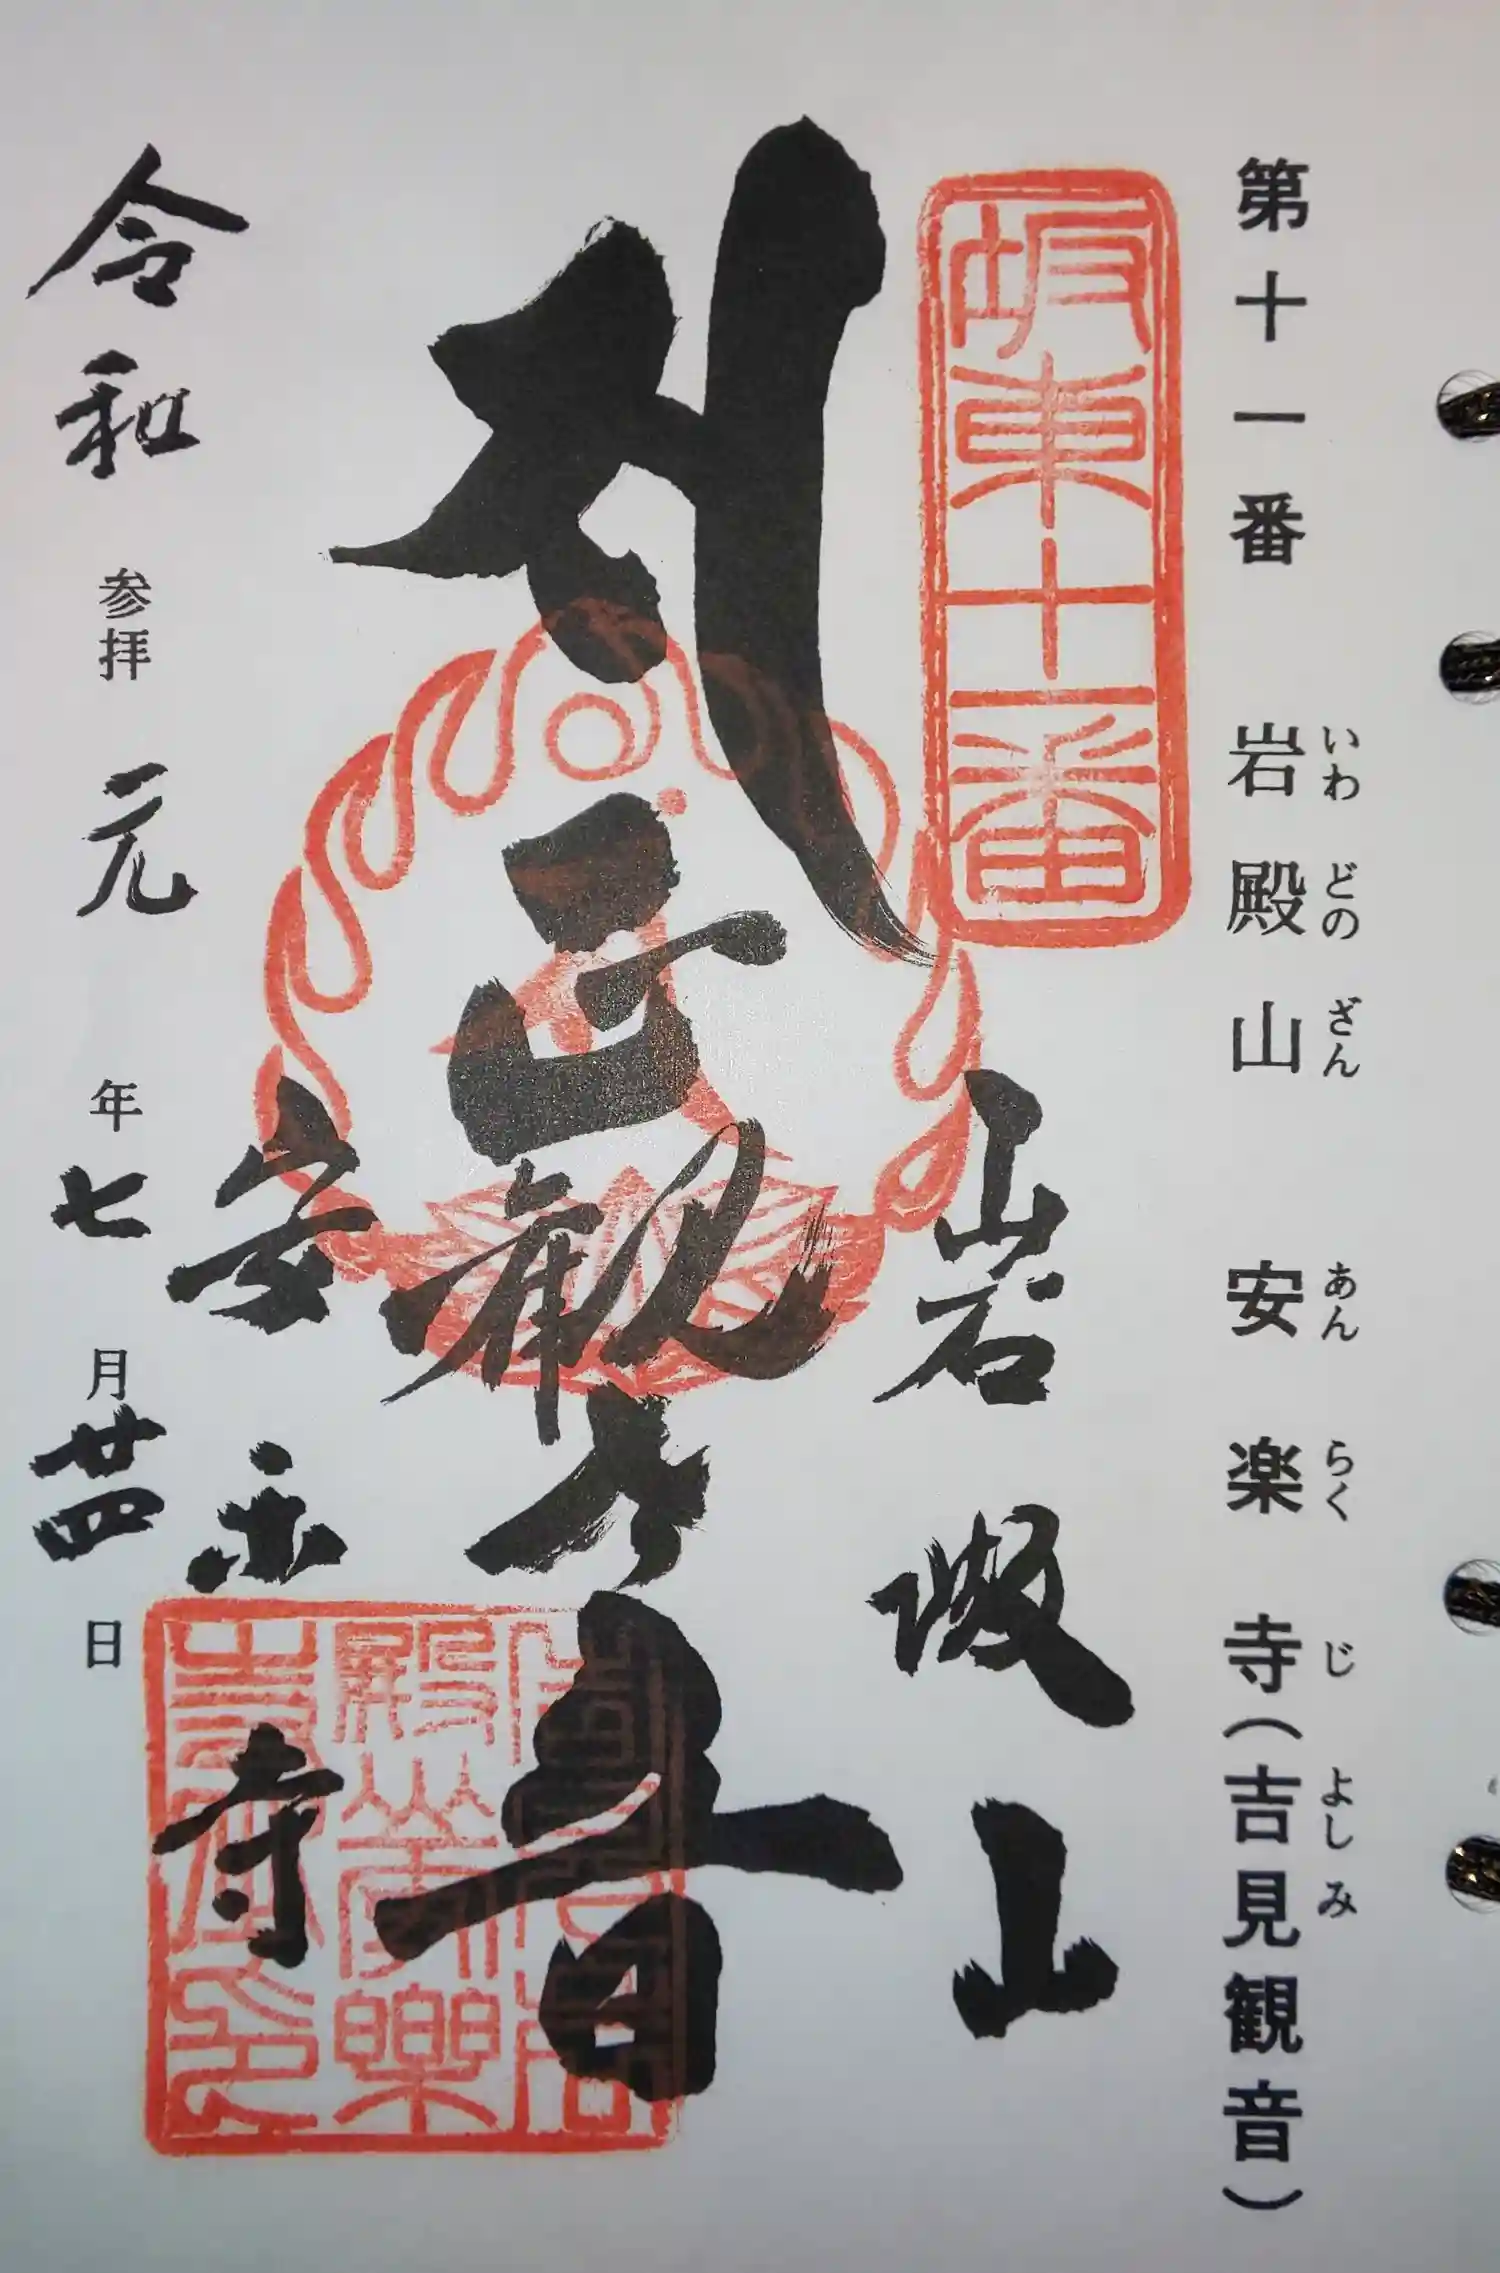 いわ どの ざん あん らく じ よし み
第十一番 岩殿山 安楽寺(吉見観音)
坂東十一番
岩殿山
正観世音
安楽寺
令和 参拝 元 年 七 月 廿四 日